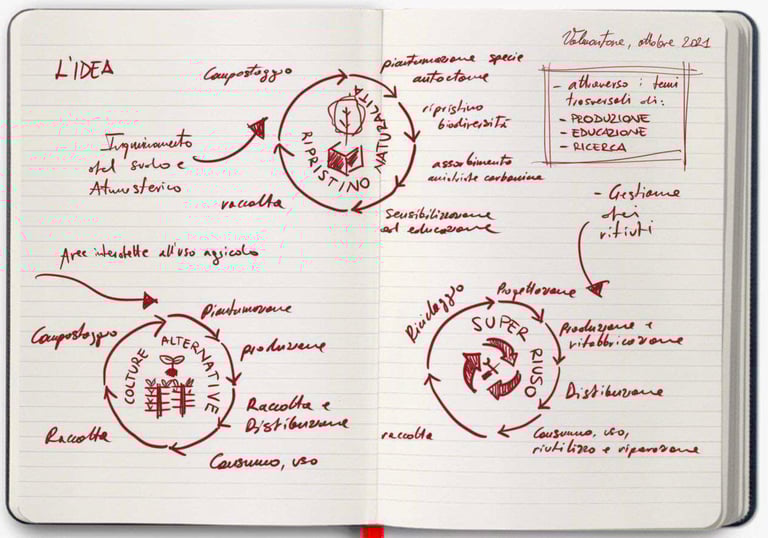 L'IDEA
Valmontone, ottobre 2021
- attraverso i temi
trasversali di:
- PRODUZIONE
- EDUCAZIONE
- RICERCA
Compostaggio
piantumazione specie
autoctone
ripristino
biodiversità
assorbimento
anidride carbonica
sensibilizzazione
ed educazione
raccolta
RIPRISTINO NATURALITÀ
Inquinamento
del suolo e
Atmosferico
- Gestione
dei
rifiuti
Aree interdette all'uso agricolo
Compostaggio
Piantumazione
produzione
Raccolta e
Distribuzione
Consumo, uso
Raccolta
COLTURE ALTERNATIVE
Riciclaggio
Progettazione
Produzione e
rifabbricazione
Distribuzione
Consumo, uso,
riutilizzo e riparazione
raccolta
SUPER RIUSO